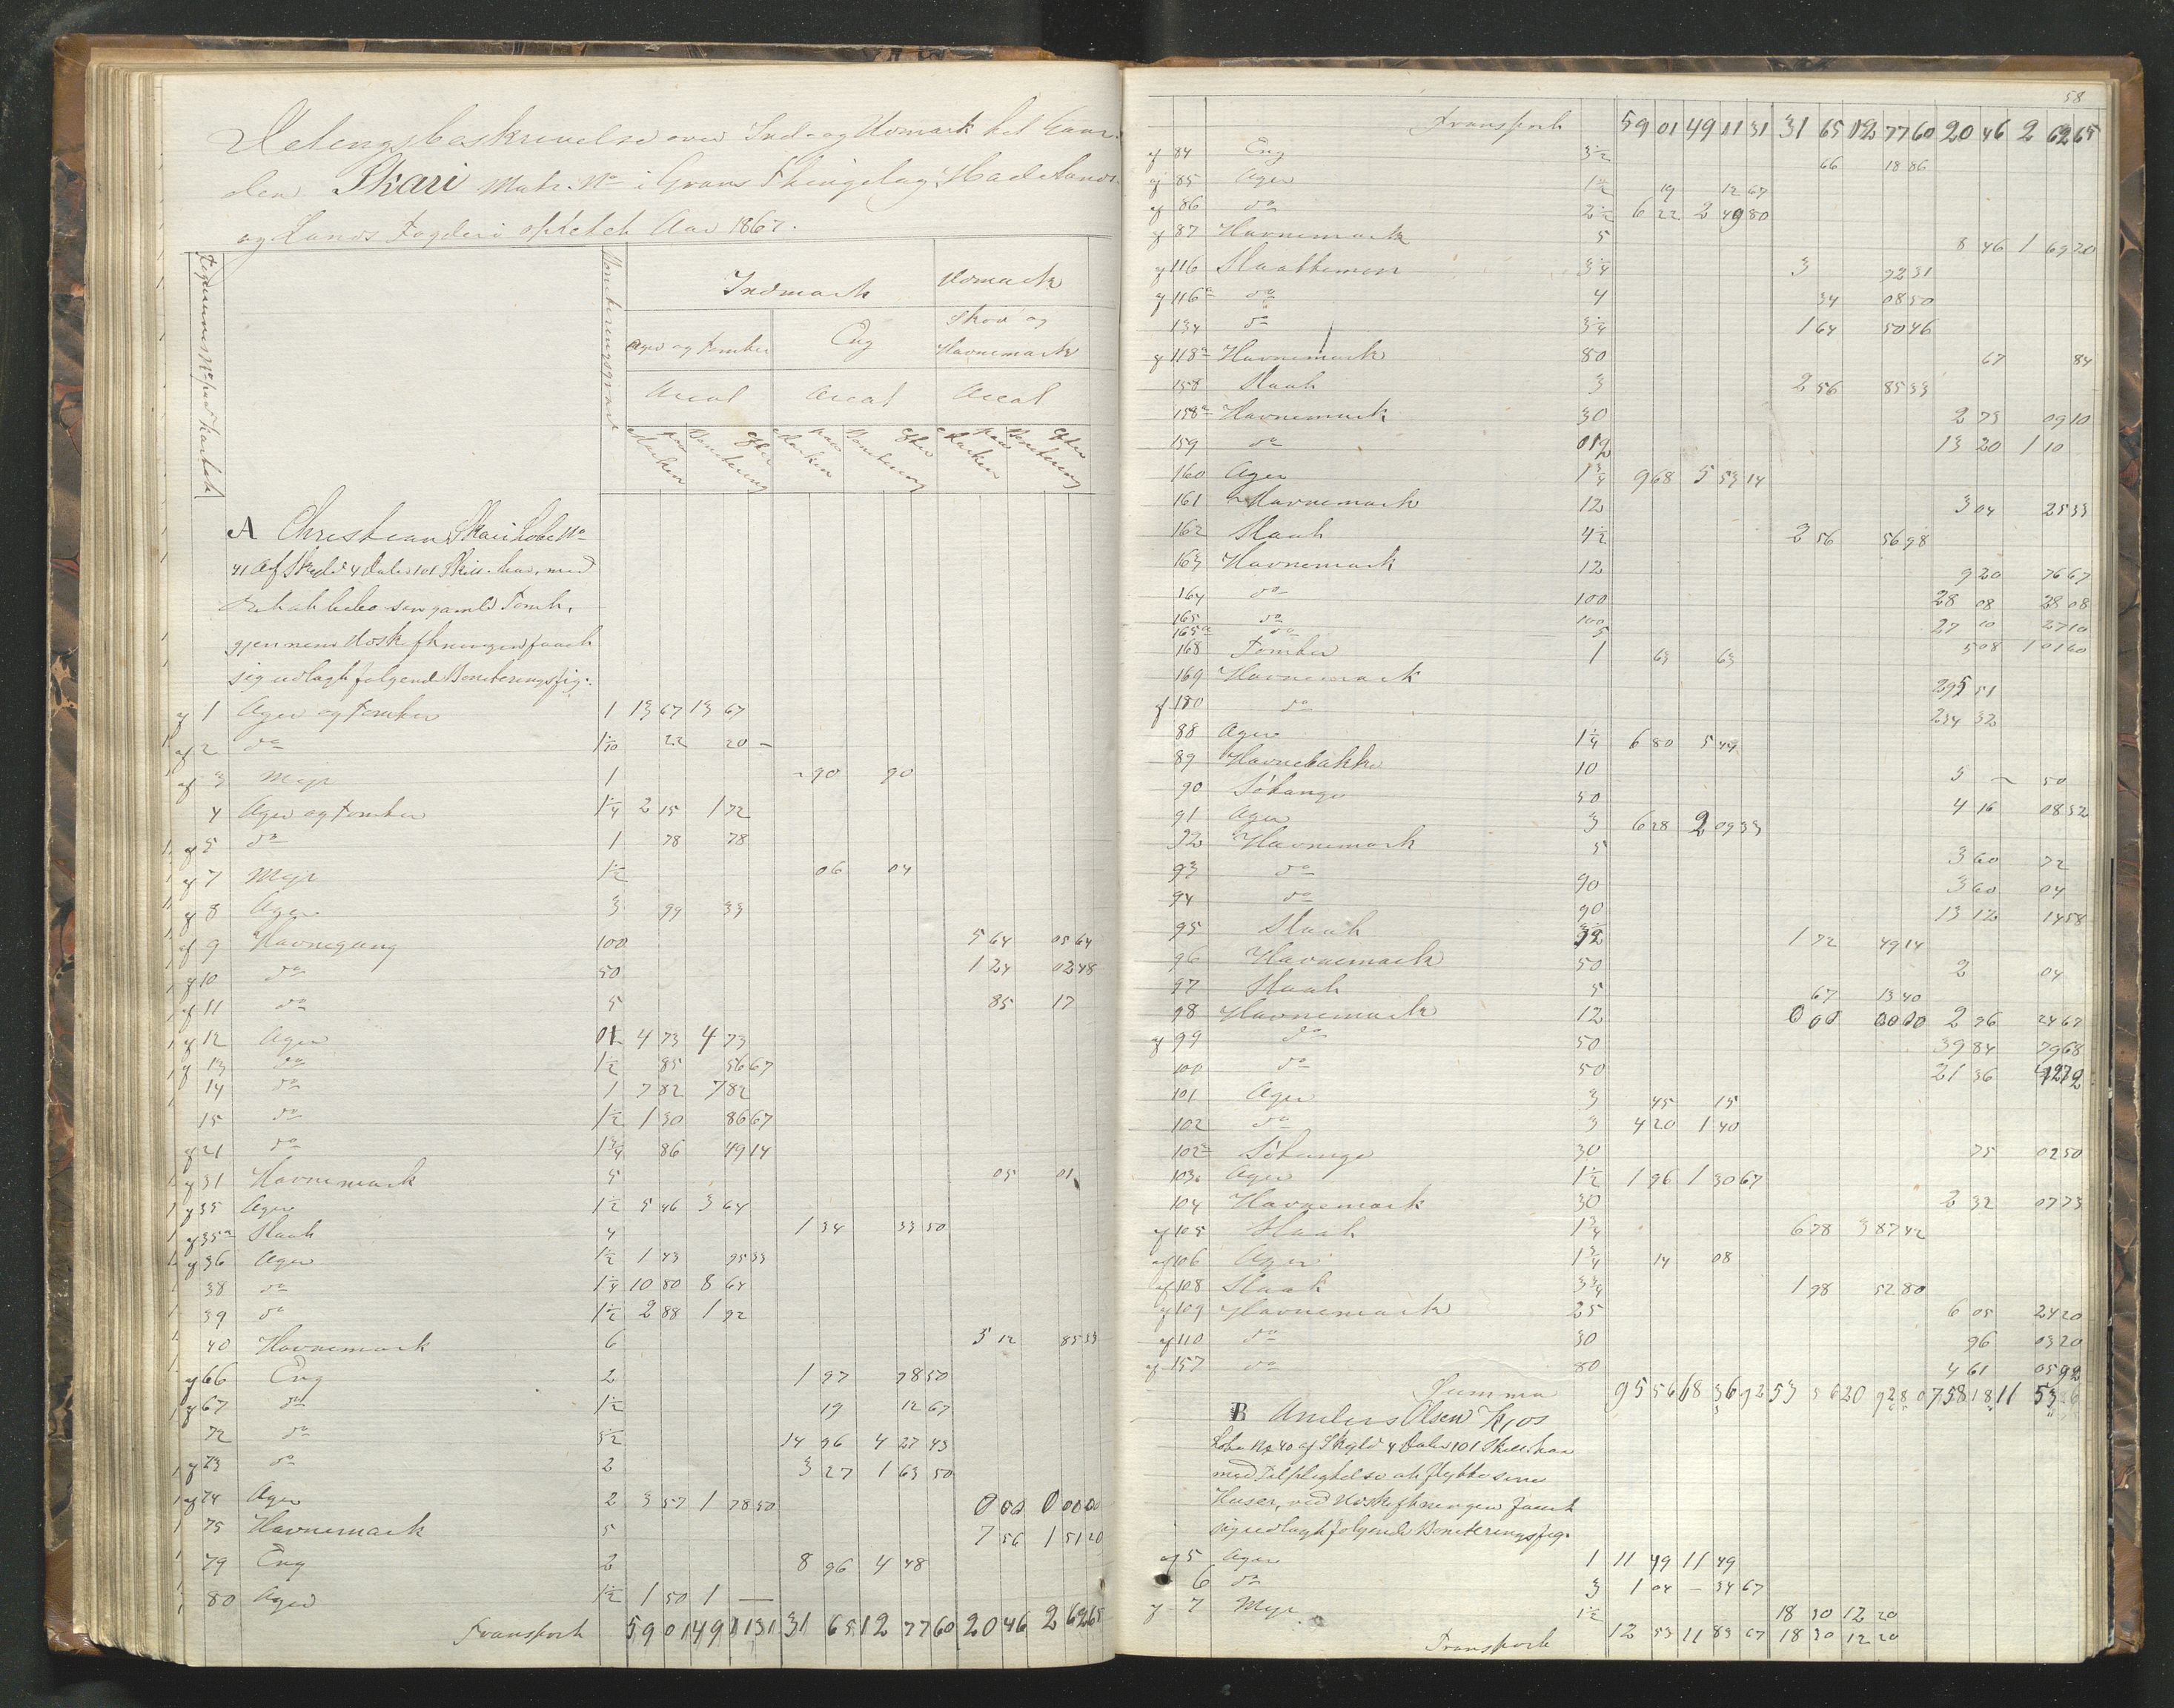 Delingsbeskrivelse over Ind og Udmark til Gaar-
den Skari Matr. No i Grans Thinglag, Hadelands
og Lands Fogderi optetet Aar 1867.
Indmark
Udmark
Ager og Tomter
Eng
Skov og
Havnemark
Areal Areal Areal
A Christian Skari Løbe No
41 af Skyld 4 Daler 101 Skill. har, med
gjennem Udskiftningen faaet
sig udlagt følgende Boniteringsfig.
af 1 Ager og Tomter 1 13 67 13 67
af 2 do 1 1/10 22 20 -
af 3 Myr 1 - 90 90
4 Ager og Tomter 1 1/4 2 15 1 72
af 5 do 1 78 78
af 7 Myr 1 1/2 06 04
af 8 Ager 3 99 33
af 9 Havnegang 100 5 64 05 64
af 10 do 50 1 24 02 48
af 11 do 5 85 17
af 12 Ager 1 4 73 4 73
af 13 do 1 1/2 85 56 67
14 do 1 7 82 7 82
15 do 1 1/2 1 30 86 67
af 21 do 1 3/4 86 49 14
af 31 Havnemark 5 05 01
af 35 Ager 1 1/2 5 46 3 64
af 35a Slaat 4 1 34 33 50
af 36 Ager 1 1/2 1 43 95 33
38 do 1 1/4 10 80 8 64
39 do 1 1/2 2 88 1 92
40 Havnemark 6 5 12 85 33
af 66 Eng 2 1 97 98 50
af 67 do 1 1/2 19 12 67
72 do 3 1/2 14 96 4 27 43
af 73 do 2 3 27 1 63 50
af 74 Ager 2 3 57 1 78 50 0 00 0 00 00
75 Havnemark 5 7 56 1 51 20
79 Eng 2 8 96 4 48
80 Ager 1 1/2 1 50 1 —
Transport 59 01 49 11 31 31 65 12 77 60 20 46 2 62 65
58
Transport 59 01 49 11 31 31 65 12 77 60 20 46 2 62 65
af 84 Eng 3 1/2 66 18 86
af 85 Ager 1 1/2 19 12 67
af 86 do 2 1/2 6 22 2 49 80
af 87 Havnemark 5 8 46 1 69 20
af 116 Slaattemon 3 1/4 3 92 31
af 116a do 4 34 08 50
134 do 3 1/4 1 64 50 46
af 118a Havnemark 80 67 84
158 Slaat 3 2 56 85 33
158a Havnemark 30 2 73 09 10
159 do 12 13 20 1 10
160 Ager 1 3/4 9 68 5 53 14
161 Havnemark 12 3 04 25 33
162 Slaat 4 1/2 2 56 56 98
163 Havnemark 12 9 20 76 67
164 do 100 28 08 28 08
165 do 100 27 10 27 10
165a do 5 5 08 1 01 60
168 Tomter 1 63 63
169 Havnemark 295 51
af 180 do 234 32
88 Ager 1 1/4 6 80 5 44
89 Havnebakke 10 5 - 50
90 Søhange 50 4 16 08 32
91 Ager 3 6 28 2 09 33
92 Havnemark 5 3 60 72
93 do 90 3 60 04
94 do 90 13 12 14 58
95 Slaat 3 1/2 1 72 49 14
96 Havnemark 50 2 04
97 Slaat 5 67 13 40
98 Havnemark 12 0 00 00 00 2 96 24 67
af 99 do 50 39 84 79 68
100 do 50 21 36 42 72
101 Ager 3 45 15
102 do 3 4 20 1 40
102a Søhange 30 75 02 50
103 Ager 1 1/2 1 96 1 30 67
104 Havnemark 30 2 32 07 73
af 105 Slaat 1 3/4 6 78 3 87 42
af 106 Ager 1 3/4 14 08
af 108 Slaat 3 3/4 1 98 52 80
af 109 Havnemark 25 6 05 24 20
af 110 do 30 96 03 20
af 157 do 80 4 61 05 92
Summa 95 56 68 36 92 53 56 20 92 80 758 18 11 53
B Anders Olsen Kjos
Løbe No 40 af Skyld 4 Daler 101 Skill. har
med Tilpligtelse at flytte sine
Huser, ved Udskiftningen faaet
sig udlagt følgende Boniteringsfig.
af 5 Ager 1 11 49 11 49
6 do 3 1 04 - 34 67
af 7 Myr 1 1/2 18 30 12 20
Transport 12 53 11 83 67 18 30 12 20